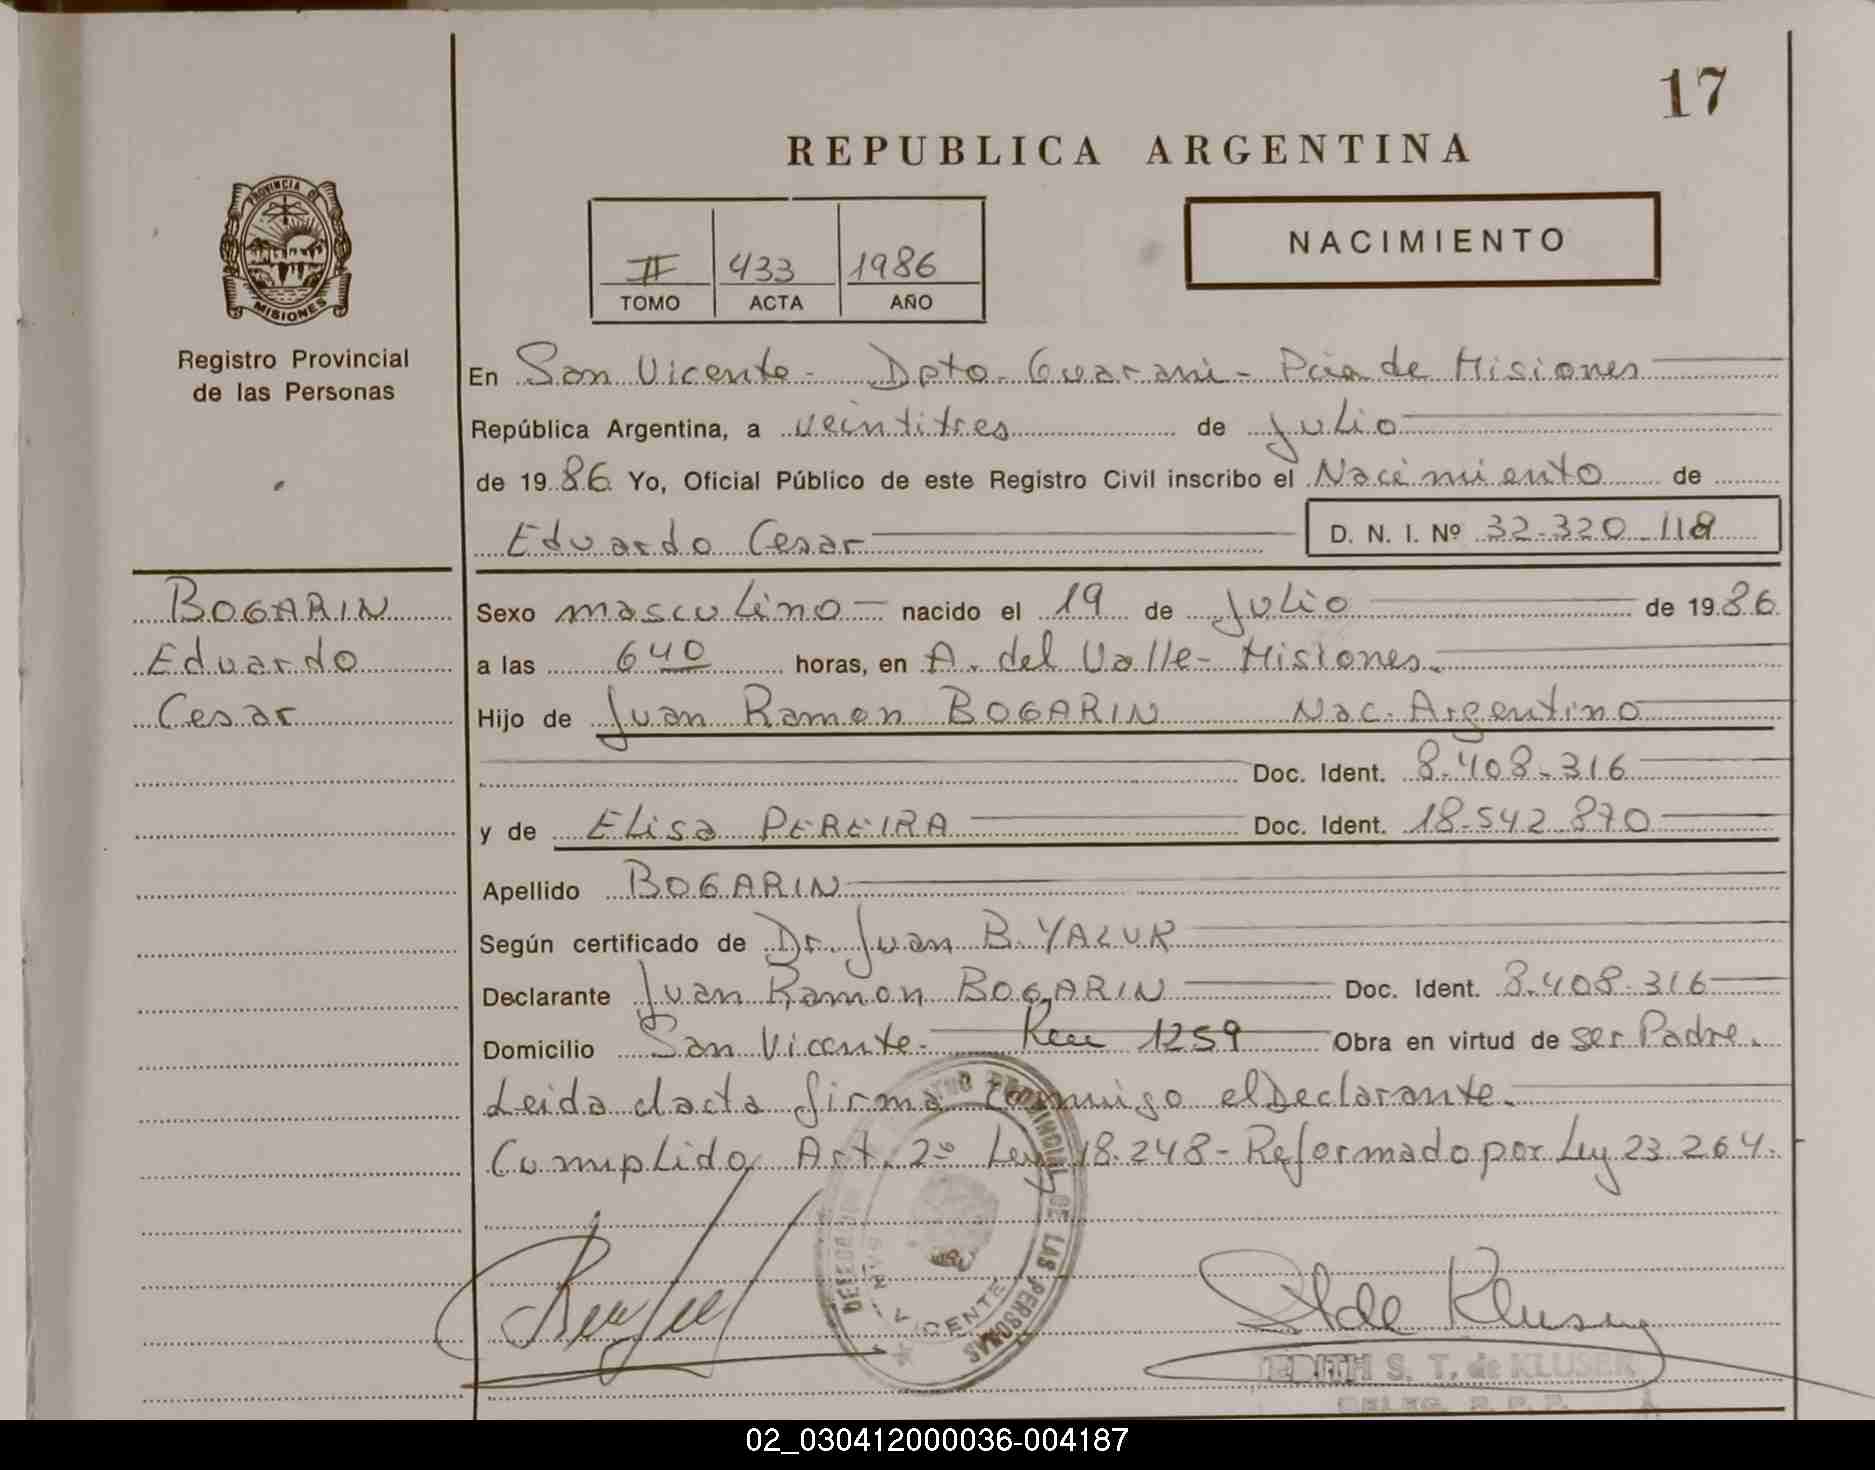 17
REPUBLICA ARGENTINA
PROVINCIA DE
MISIONES
Registro Provincial
de las Personas
II 433 1986
TOMO ACTA AÑO
NACIMIENTO
En San Vicente - Dpto Guarani - Pcia de Misiones
República Argentina, a veintitres de Julio
de 1986 Yo, Oficial Público de este Registro Civil inscribo el Nacimiento de
Eduardo Cesar D. N. I. Nº 32.320.118
BOGARIN
Eduardo
Cesar
Sexo masculino nacido el 19 de Julio de 1986
a las 640 horas, en A. del Valle - Misiones.
Hijo de Juan Ramon BOGARIN Nac. Argentino
Doc. Ident. 8.408.316
y de Elisa PEREIRA Doc. Ident. 18.542.870
Apellido BOGARIN
Según certificado de Dr. Juan B. YALUK
Declarante Juan Ramon BOGARIN Doc. Ident. 8.408.316
Domicilio San Vicente - 1259 Obra en virtud de ser Padre.
Leida el acta firma conmigo el Declarante.
Cumplido Art. 2º Ley 18.248 - Reformado por Ley 23.264.
PROVINCIAL DE LAS PERSONAS
VICENTE
EDITH S. T. de KLUSEK
02_030412000036-004187